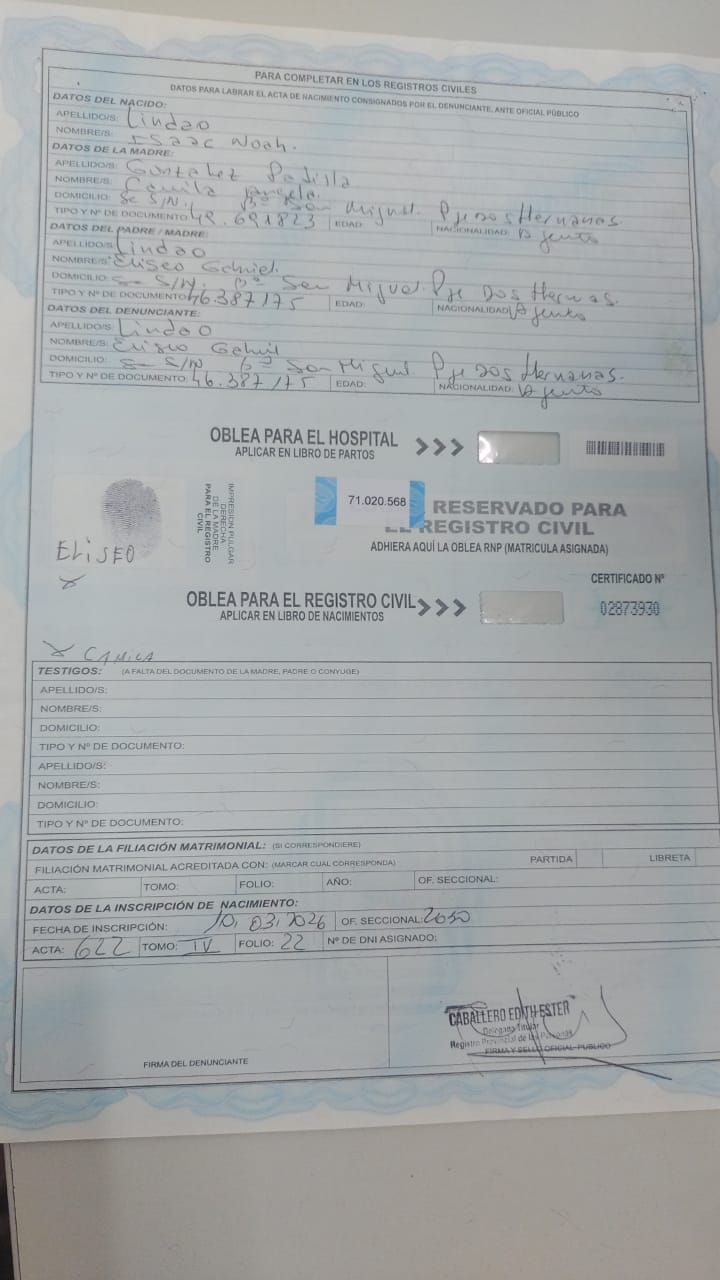 PARA COMPLETAR EN LOS REGISTROS CIVILES
DATOS PARA LABRAR EL ACTA DE NACIMIENTO CONSIGNADOS POR EL DENUNCIANTE, ANTE OFICIAL PÚBLICO
DATOS DEL NACIDO:
APELLIDO/S: Lindao
NOMBRE/S: Isaac Noah.
DATOS DE LA MADRE:
APELLIDO/S: Gonzalez Padilla
NOMBRE/S: Camila
DOMICILIO: S/N. Bº San Miguel. Pje Dos Hermanas.
TIPO Y Nº DE DOCUMENTO: 49.691823 EDAD: NACIONALIDAD:
DATOS DEL PADRE / MADRE:
APELLIDO/S: Lindao
NOMBRE/S: Eliseo Gabriel.
DOMICILIO: S/N. Bº San Miguel. Pje Dos
TIPO Y Nº DE DOCUMENTO: 46.387175 EDAD: NACIONALIDAD:
DATOS DEL DENUNCIANTE:
APELLIDO/S: Lindao
NOMBRE/S: Eliseo
DOMICILIO: S/N Bº San Miguel Pje Dos Hermanas.
TIPO Y Nº DE DOCUMENTO: 46.387175 EDAD: NACIONALIDAD:
OBLEA PARA EL HOSPITAL >>>
APLICAR EN LIBRO DE PARTOS
IMPRESION PULGAR
DERECHA
DE LA MADRE
PARA EL REGISTRO
CIVIL
71.020.568
RESERVADO PARA
EL REGISTRO CIVIL
ADHIERA AQUÍ LA OBLEA RNP (MATRICULA ASIGNADA)
ELISEO
CERTIFICADO Nº
02873930
OBLEA PARA EL REGISTRO CIVIL >>>
APLICAR EN LIBRO DE NACIMIENTOS
CAMILA
TESTIGOS: (A FALTA DEL DOCUMENTO DE LA MADRE, PADRE O CONYUGE)
APELLIDO/S:
NOMBRE/S:
DOMICILIO:
TIPO Y Nº DE DOCUMENTO:
APELLIDO/S:
NOMBRE/S:
DOMICILIO:
TIPO Y Nº DE DOCUMENTO:
DATOS DE LA FILIACIÓN MATRIMONIAL: (SI CORRESPONDIERE)
FILIACIÓN MATRIMONIAL ACREDITADA CON: (MARCAR CUAL CORRESPONDA) PARTIDA LIBRETA
ACTA: TOMO: FOLIO: AÑO: OF. SECCIONAL:
DATOS DE LA INSCRIPCIÓN DE NACIMIENTO:
FECHA DE INSCRIPCIÓN: 10, 03, 2026 OF. SECCIONAL: 2050
ACTA: 622 TOMO: IV FOLIO: 22 Nº DE DNI ASIGNADO:
CABALLERO EDITH ESTER
Delegada Titular
Registro Provincial de las Personas
FIRMA Y SELLO OFICIAL PÚBLICO
FIRMA DEL DENUNCIANTE